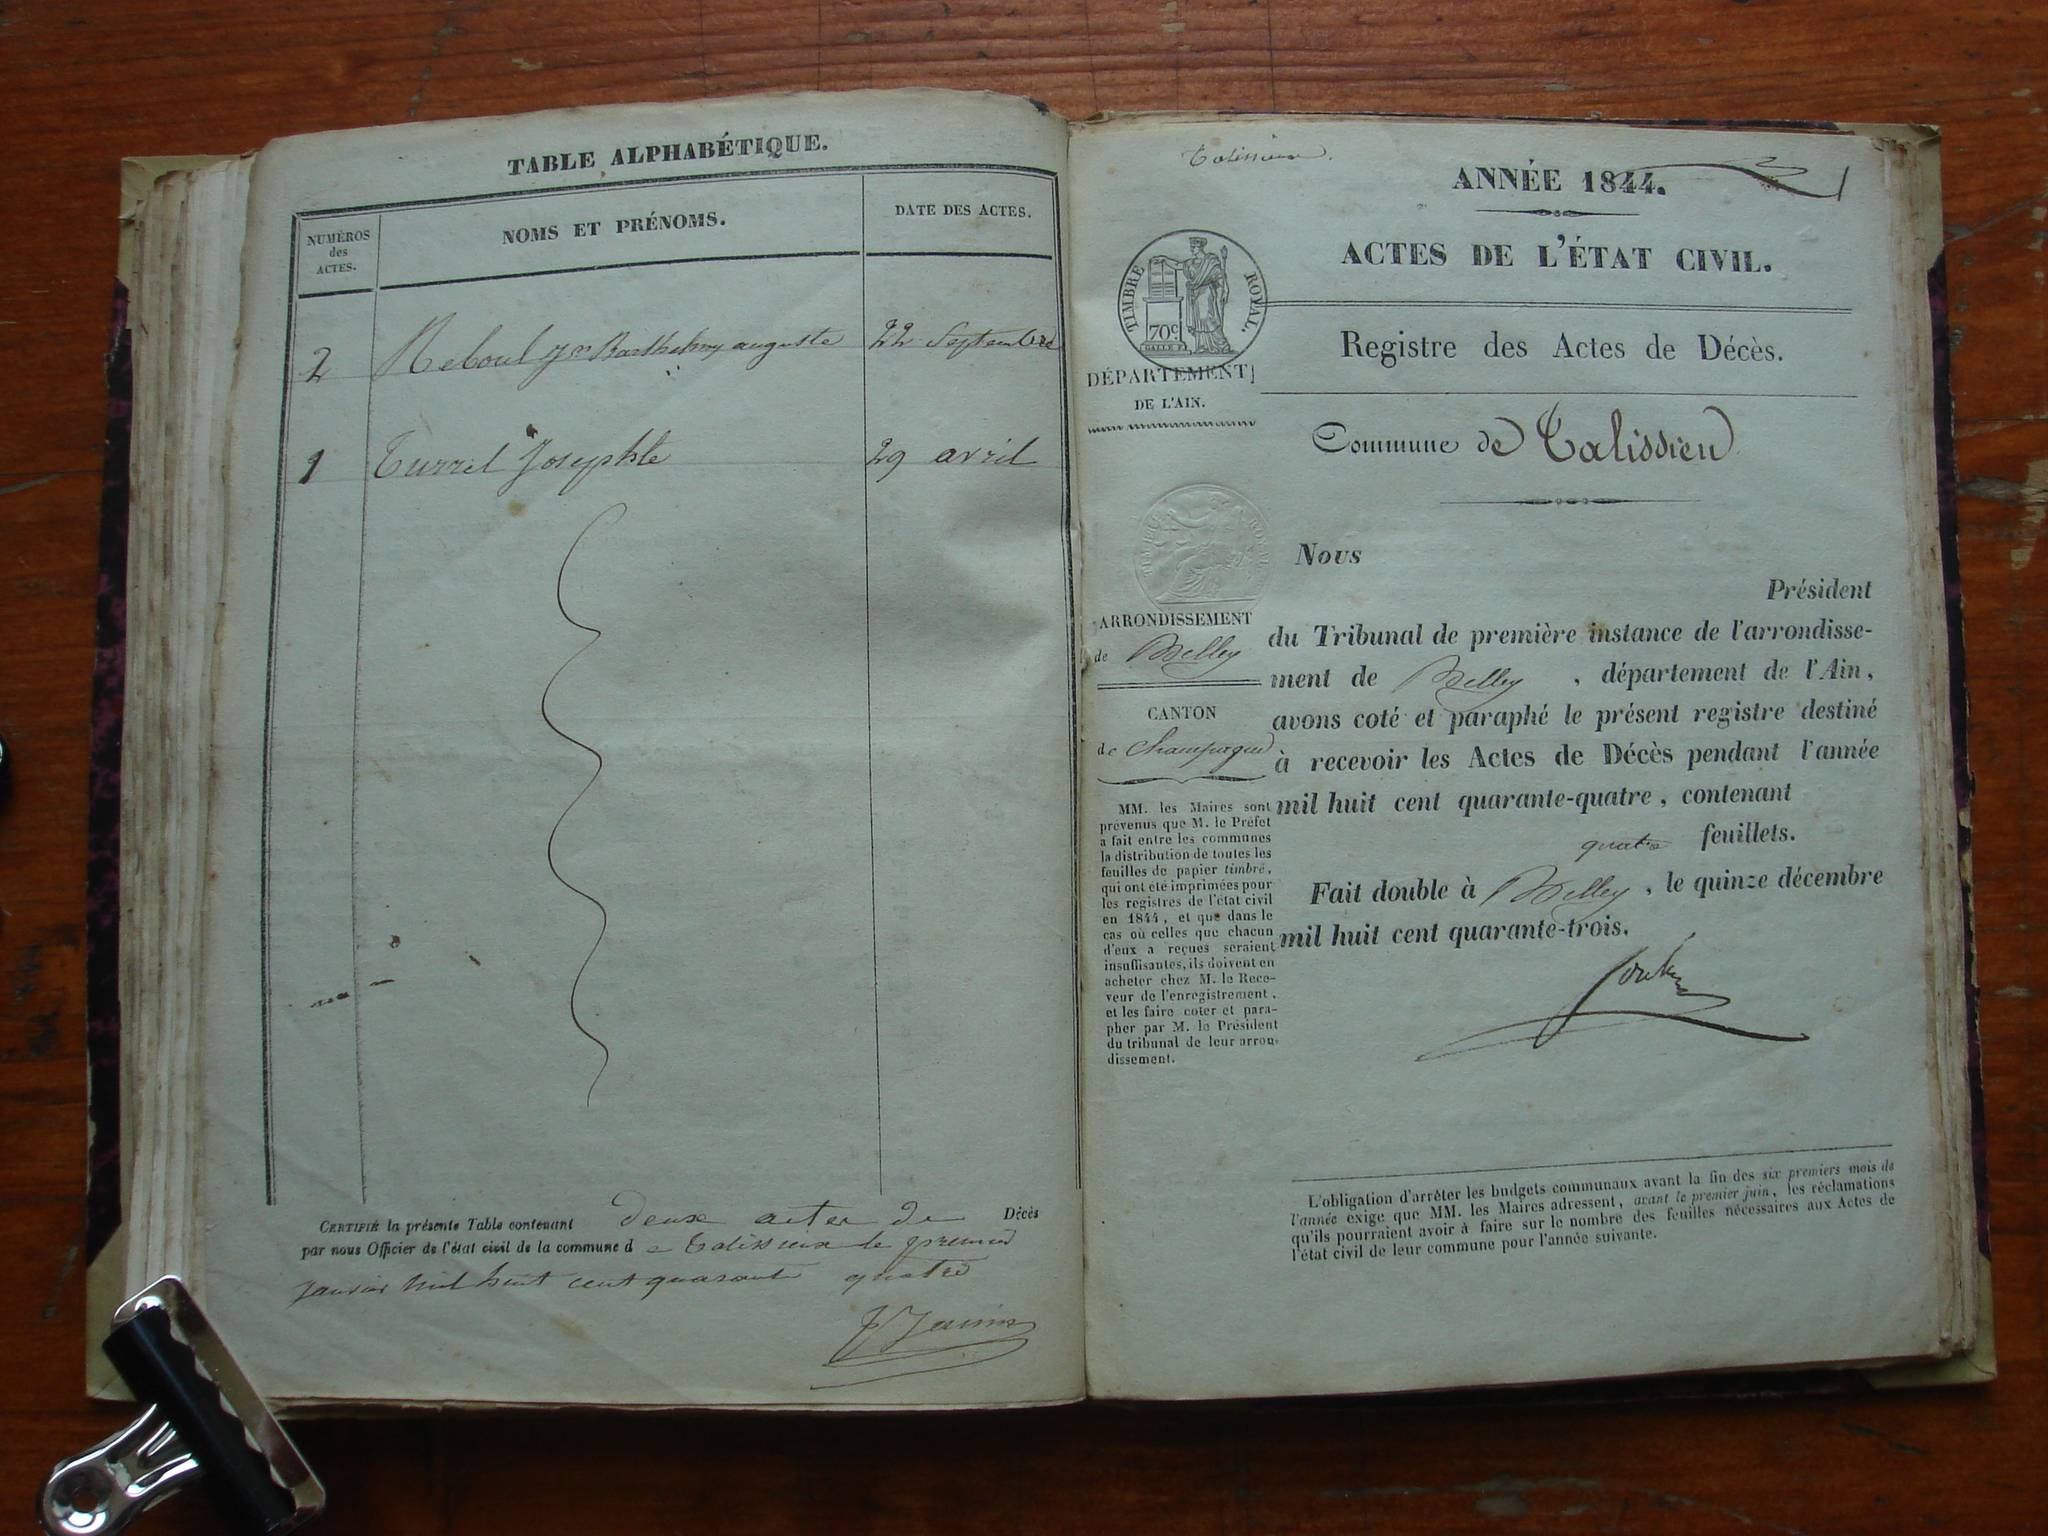 TABLE ALPHABÉTIQUE.
NUMÉROS
des
ACTES.
NOMS ET PRÉNOMS.
DATE DES ACTES.
2 Reboul Jn Barthelmy auguste 22 Septembre
1 Turrel Josephte 29 avril
CERTIFIÉ la présente Table contenant deux actes de Décès
par nous Officier de l'état civil de la commune d e Talissieu le premier
Janvier mil huit cent quarante quatre
Talissieu.
1
ANNÉE 1844.
ACTES DE L'ÉTAT CIVIL.
TIMBRE ROYAL.
70c
Registre des Actes de Décès.
DÉPARTEMENT
DE L'AIN.
Commune de Talissieu
ARRONDISSEMENT
de Belley
CANTON
de Champagne
MM. les Maires sont
prévenus que M. le Préfet
a fait entre les communes
la distribution de toutes les
feuilles de papier timbré,
qui ont été imprimées pour
les registres de l'état civil
en 1844, et que dans le
cas où celles que chacun
d'eux a reçues seraient
insuffisantes, ils doivent en
acheter chez M. le Rece-
veur de l'enregistrement,
et les faire coter et para-
pher par M. le Président
du tribunal de leur arron-
dissement.
Nous
Président
du Tribunal de première instance de l'arrondisse-
ment de Belley, département de l'Ain,
avons coté et paraphé le présent registre destiné
à recevoir les Actes de Décès pendant l'année
mil huit cent quarante-quatre, contenant
quatre feuillets.
Fait double à Belley, le quinze décembre
mil huit cent quarante-trois.
L'obligation d'arrêter les budgets communaux avant la fin des six premiers mois de
l'année exige que MM. les Maires adressent, avant le premier juin, les réclamations
qu'ils pourraient avoir à faire sur le nombre des feuilles nécessaires aux Actes de
l'état civil de leur commune pour l'année suivante.